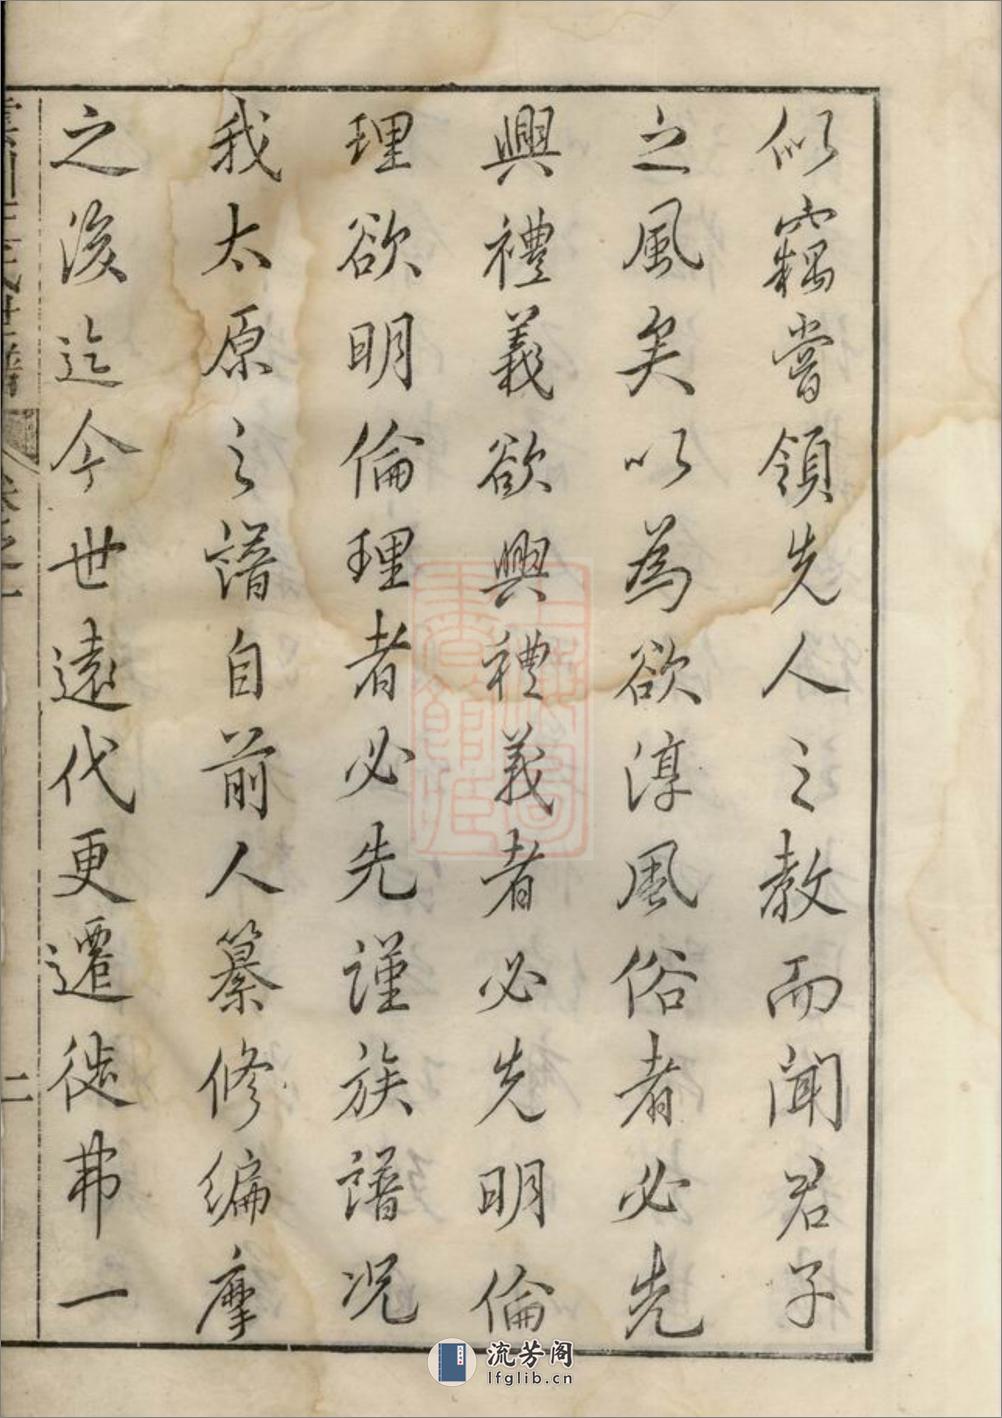 似竊嘗領先人之教而聞君子
之風矣以為欲淳風俗者必先
興禮義欲興禮義者必先明倫
理欲明倫理者必先謹族譜况
我太原之譜自前人纂修編摩
之後迄今世遠代更遷徙弗一
二
流芳阁
lfglib.cn